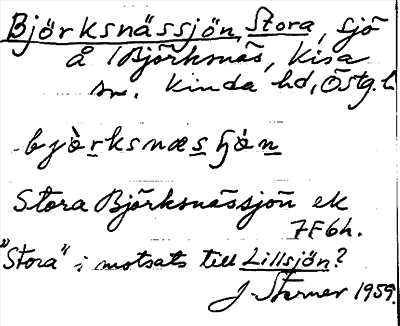 Björksnässjön, Stora, sjö
å Björksnäs, Kisa
sn. Kinda hd, Östg. l.
bjòrksnæsʃǿn
Stora Björksnässjön ek
7F6h.
"Stora" i motsats till Lillsjön?
J. Sterner 1959.